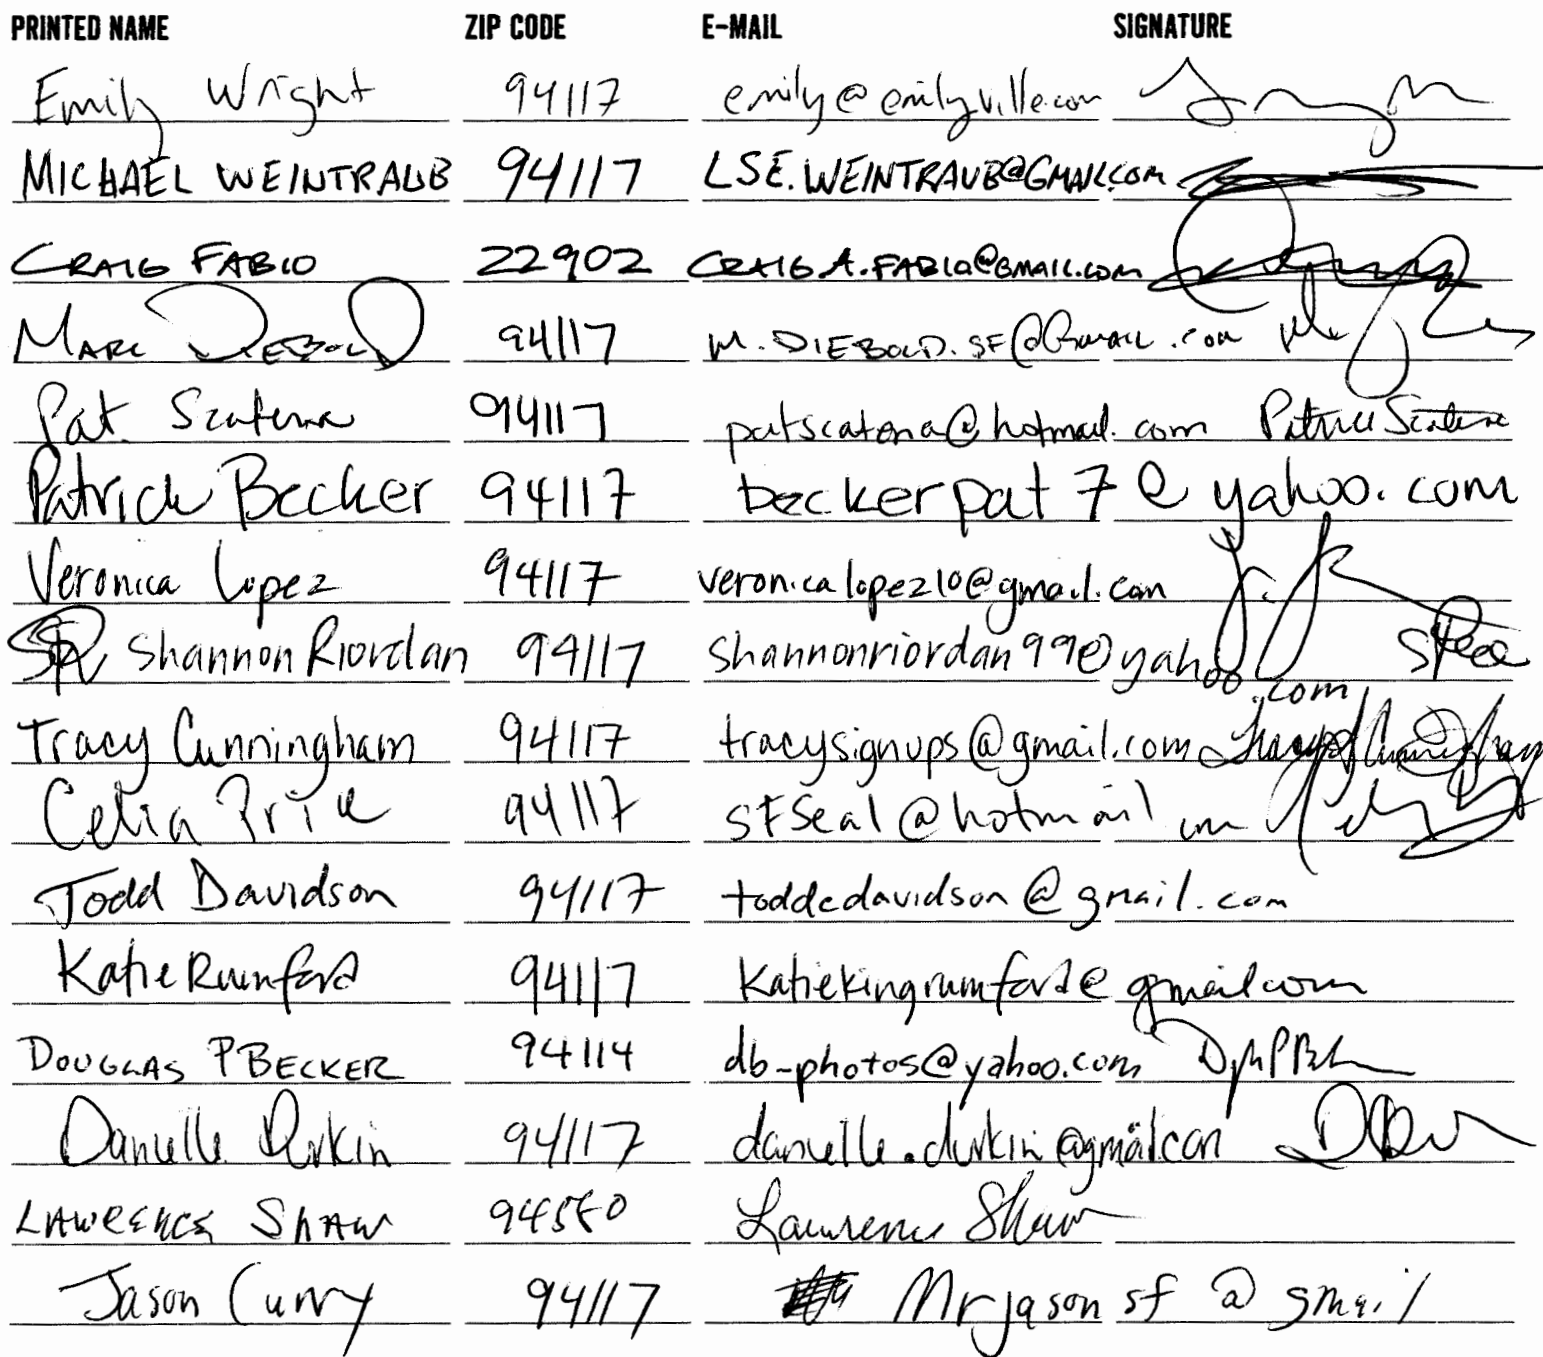 PRINTED NAME ZIP CODE E-MAIL SIGNATURE
Emily Wright 94117 emily@emilyville.com
MICHAEL WEINTRAUB 94117 LSE.WEINTRAUB@GMAIL.COM
CRAIG FABIO 22902 CRAIG.A.FABIO@GMAIL.COM
MARC DIEBOLD 94117 M.DIEBOLD.SF@GMAIL.COM
Pat. Scatena 94117 patscatena@hotmail.com
Patrick Becker 94117 beckerpat7@yahoo.com
Veronica Lopez 94117 veronicalopez10@gmail.com
SR Shannon Riordan 94117 shannonriordan99@yahoo.com
Tracy Cunningham 94117 tracysignups@gmail.com
Celia Price 94117 sfseal@hotmail
Todd Davidson 94117 toddedavidson@gmail.com
Katie Rumford 94117 Katiekingrumford@gmail.com
DOUGLAS P BECKER 94114 db-photos@yahoo.com
Danielle Durkin 94117 danielle.durkin@gmail.com
LAWRENCE SHAW 94580 Lawrence Shaw
Jason Curry 94117 Mrjasonsf@gmail